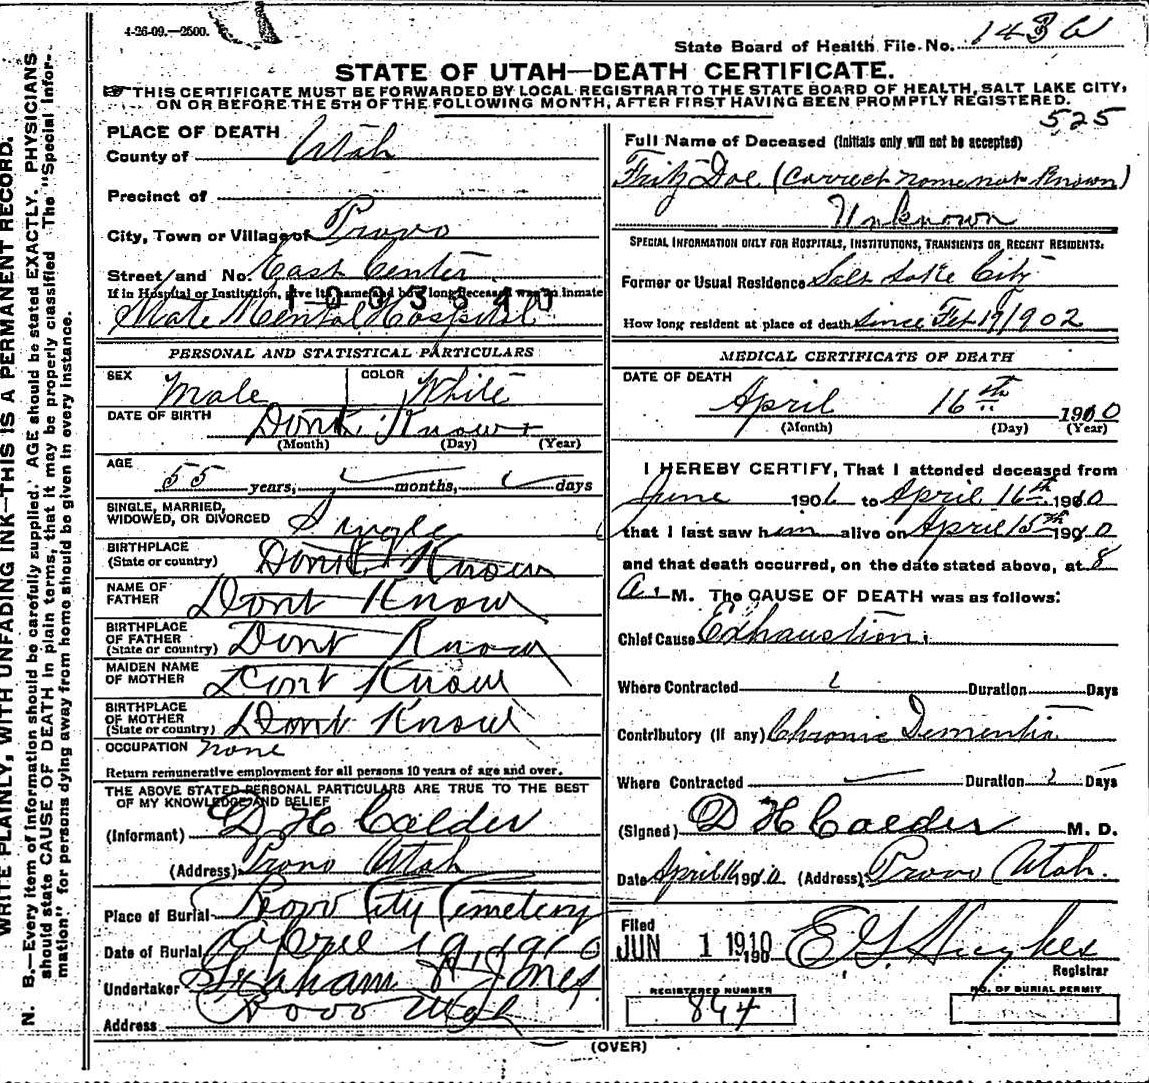 4-26-09.—2500.
State Board of Health File No.
STATE OF UTAH—DEATH CERTIFICATE.
THIS CERTIFICATE MUST BE FORWARDED BY LOCAL REGISTRAR TO THE STATE BOARD OF HEALTH, SALT LAKE CITY,
ON OR BEFORE THE 5TH OF THE FOLLOWING MONTH, AFTER FIRST HAVING BEEN PROMPTLY REGISTERED.
525
PLACE OF DEATH
County of Utah
Precinct of
City, Town or Village of Provo
Street and No. East Center
If in Hospital or Institution, give its name and how long deceased was an inmate
State Mental Hospital
PERSONAL AND STATISTICAL PARTICULARS
SEX Male COLOR White
DATE OF BIRTH Dont Know
(Month) (Day) (Year)
AGE
55 years, months, days
SINGLE, MARRIED,
WIDOWED, OR DIVORCED Single
BIRTHPLACE
(State or country) Dont Know
NAME OF
FATHER Dont Know
BIRTHPLACE
OF FATHER
(State or country) Dont Know
MAIDEN NAME
OF MOTHER Dont Know
BIRTHPLACE
OF MOTHER
(State or country) Dont Know
OCCUPATION none
Return remunerative employment for all persons 10 years of age and over.
THE ABOVE STATED PERSONAL PARTICULARS ARE TRUE TO THE BEST
OF MY KNOWLEDGE AND BELIEF
(Informant) D H Calder
(Address) Provo Utah
Place of Burial Provo City Cemetery
Date of Burial April 19 1910
Undertaker Graham & Jones
Address Provo Utah
Full Name of Deceased (Initials only will not be accepted)
Fritz Doe (Correct name not Known)
Unknown
SPECIAL INFORMATION ONLY FOR HOSPITALS, INSTITUTIONS, TRANSIENTS OR RECENT RESIDENTS.
Former or Usual Residence Salt Lake City
How long resident at place of death Since Feb 19/1902
MEDICAL CERTIFICATE OF DEATH
DATE OF DEATH
April 16th 1910
(Month) (Day) (Year)
I HEREBY CERTIFY, That I attended deceased from
June 190 to April 16th 1910
that I last saw him alive on April 15th 1910
and that death occurred, on the date stated above, at 8
A. M. The CAUSE OF DEATH was as follows:
Chief Cause Exhaustion.
Where Contracted Duration Days
Contributory (if any) Chronic Dementia
Where Contracted Duration Days
(Signed) D H Calder M. D.
Date April 16 1910 (Address) Provo Utah.
Filed
JUN 1 1910 190 E G Hughes
Registrar
REGISTERED NUMBER
864
NO. OF BURIAL PERMIT
(OVER)
WRITE PLAINLY, WITH UNFADING INK—THIS IS A PERMANENT RECORD.
N. B.—Every item of information should be carefully supplied. AGE should be stated EXACTLY. PHYSICIANS
should state CAUSE OF DEATH in plain terms, that it may be properly classified. The "Special Infor-
mation" for persons dying away from home should be given in every instance.